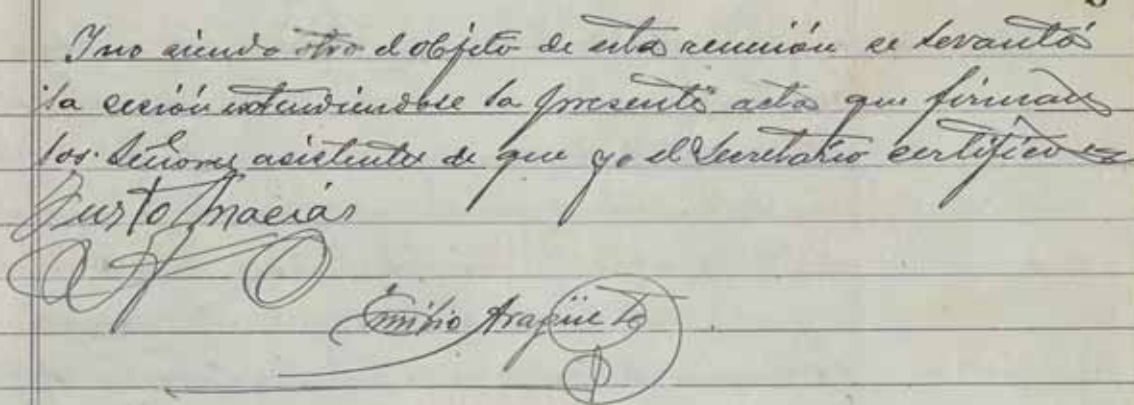 Y no siendo otro el objeto de esta reunión se levantó
la seción extendiendose la presente acta que firman
los Señores asistentes de que yo el Secretario certifico
Justo Macías
Emilio Aragüete